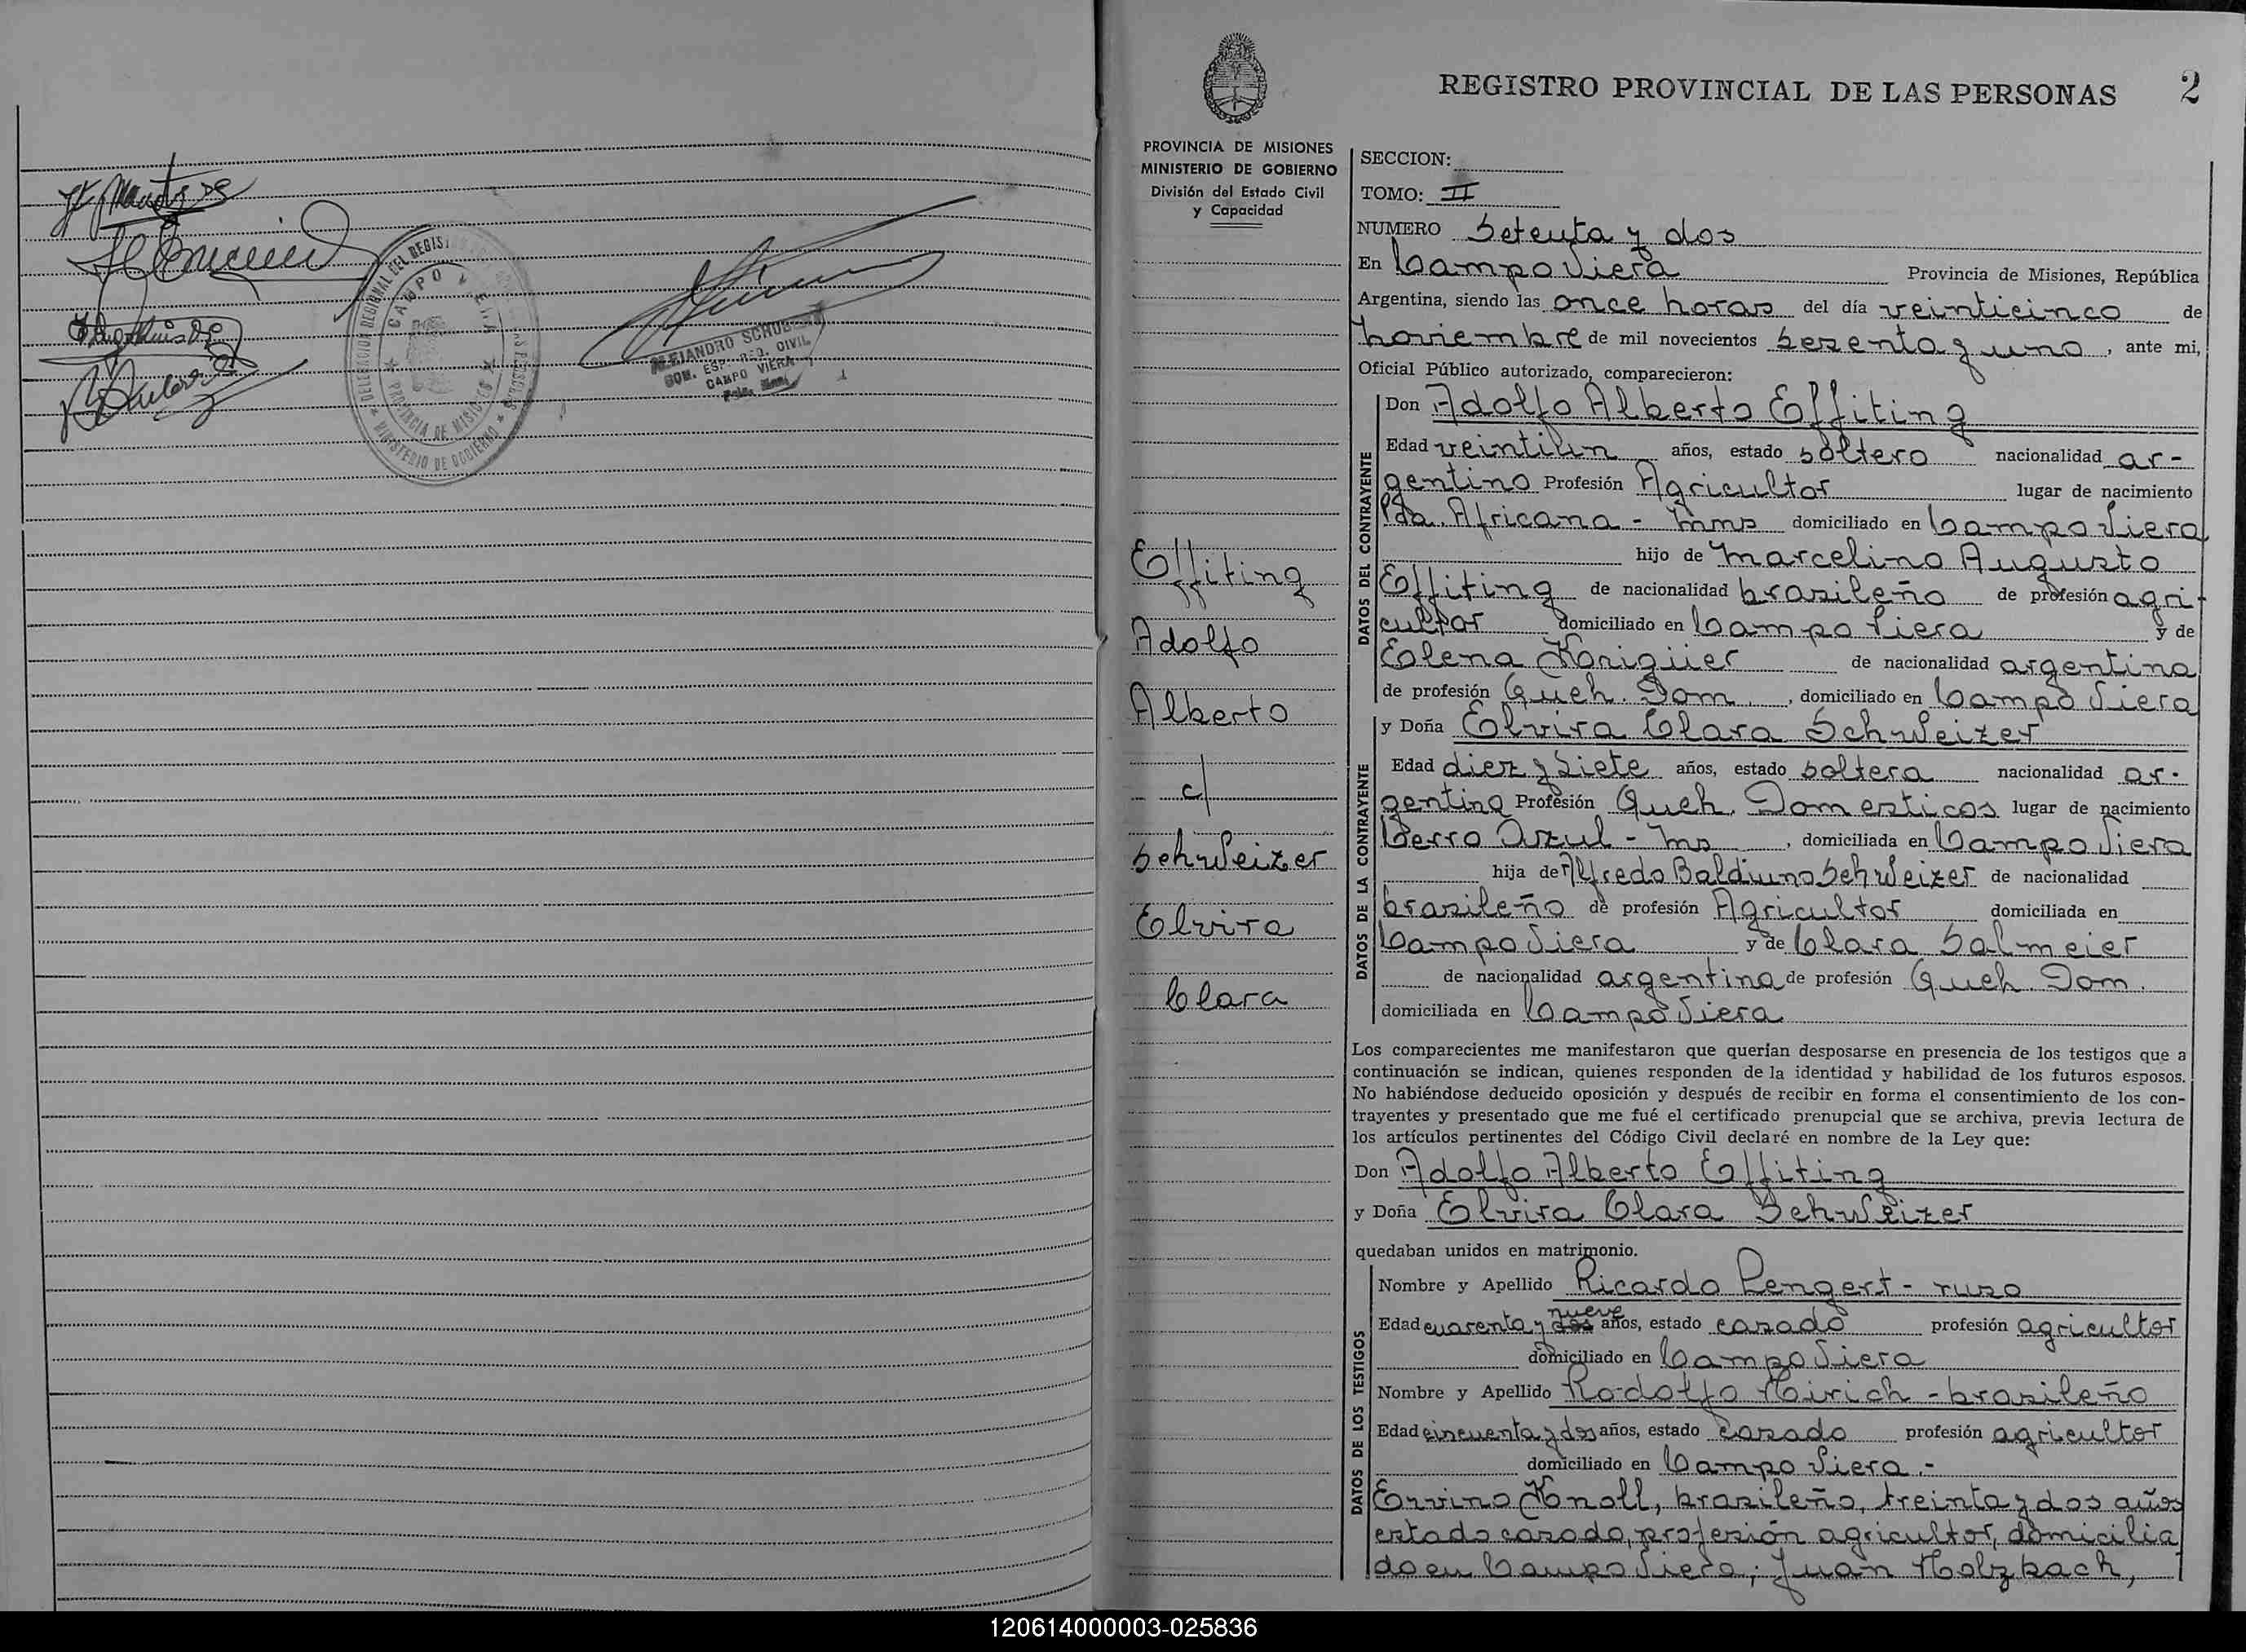 DELEGACION REGIONAL DEL REGISTRO
CAMPO VIERA
PROVINCIA DE MISIONES
MINISTERIO DE GOBIERNO
ALEJANDRO
ESP. REG. CIVIL
CAMPO VIERA
REGISTRO PROVINCIAL DE LAS PERSONAS 2
PROVINCIA DE MISIONES
MINISTERIO DE GOBIERNO
División del Estado Civil
y Capacidad
Effiting
Adolfo
Alberto
c/
Schweizer
Elvira
Clara
SECCION:
TOMO: II
NUMERO Setenta y dos
En Campo Viera Provincia de Misiones, República
Argentina, siendo las once horas del día veinticinco de
noviembre de mil novecientos sesenta y uno, ante mi,
Oficial Público autorizado, comparecieron:
DATOS DEL CONTRAYENTE
Don Adolfo Alberto Effiting
Edad veintiún años, estado soltero nacionalidad ar-
gentino Profesión Agricultor lugar de nacimiento
Pda. Africana - Mnes domiciliado en Campo Viera
hijo de Marcelino Augusto
Effiting de nacionalidad brasileño de profesión agri-
cultor domiciliado en Campo Viera y de
Elena de nacionalidad argentina
de profesión Queh. Dom., domiciliado en Campo Viera
DATOS DE LA CONTRAYENTE
y Doña Elvira Clara Schweizer
Edad diez y siete años, estado soltera nacionalidad ar-
gentina Profesión Queh. Domesticos lugar de nacimiento
Cerro Azul - Ms, domiciliada en Campo Viera
hija de Alfredo Balduino Schweizer de nacionalidad
brasileño de profesión Agricultor domiciliada en
Campo Viera y de Clara Salmeier
de nacionalidad argentina de profesión Queh. Dom.
domiciliada en Campo Viera
Los comparecientes me manifestaron que querían desposarse en presencia de los testigos que a
continuación se indican, quienes responden de la identidad y habilidad de los futuros esposos.
No habiéndose deducido oposición y después de recibir en forma el consentimiento de los con-
trayentes y presentado que me fué el certificado prenupcial que se archiva, previa lectura de
los artículos pertinentes del Código Civil declaré en nombre de la Ley que:
Don Adolfo Alberto Effiting
y Doña Elvira Clara Schweizer
quedaban unidos en matrimonio.
DATOS DE LOS TESTIGOS
Nombre y Apellido Ricardo Rengert - ruso
Edad cuarenta y nueve años, estado casado profesión agricultor
domiciliado en Campo Viera
Nombre y Apellido Rodolfo Hirich - brasileño
Edad cincuenta y dos años, estado casado profesión agricultor
domiciliado en Campo Viera.-
Ervino Knoll, brasileño, treinta y dos años
estado casado, profesión agricultor, domicilia
do en Campo Viera; Juan Holzbach,
120614000003-025836